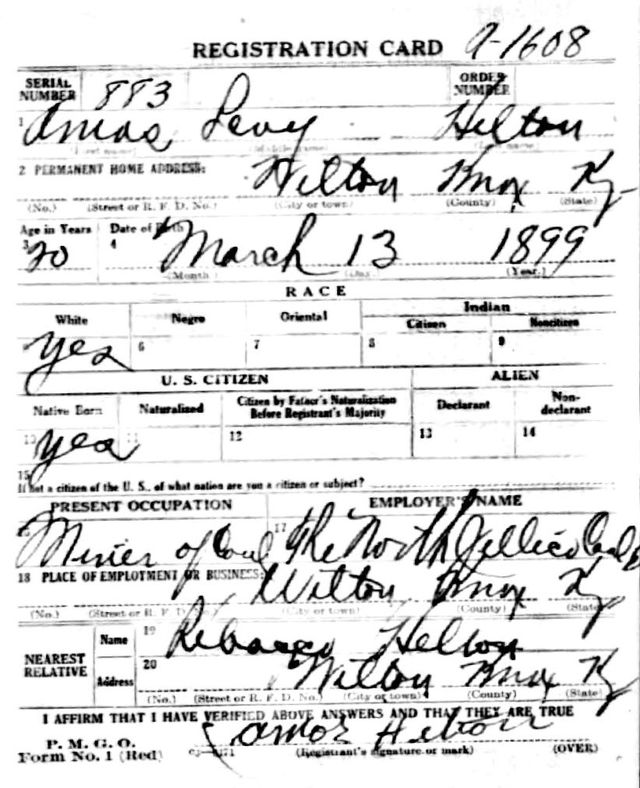 REGISTRATION CARD 9-1608
SERIAL NUMBER 883 ORDER NUMBER
1 Amos Levy Helton
(First name) (Middle name) (Last name)
2 PERMANENT HOME ADDRESS: Wilton Knox Ky
(No.) (Street or R. F. D. No.) (City or town) (County) (State)
Age in Years Date of Birth
3 20 4 March 13 1899
(Month) (Day) (Year.)
RACE
White Negro Oriental Indian
Citizen Noncitizen
Yes 6 7 8 9
U. S. CITIZEN ALIEN
Native Born Naturalized Citizen by Father's Naturalization Before Registrant's Majority Declarant Non-declarant
10 yes 11 12 13 14
15
If not a citizen of the U. S., of what nation are you a citizen or subject?
PRESENT OCCUPATION EMPLOYER'S NAME
16 Miner of Coal 17 The North Jellico Coal
18 PLACE OF EMPLOYMENT OR BUSINESS: Wilton, Knox Ky
(No.) (Street or R. F. D. No.) (City or town) (County) (State)
NEAREST RELATIVE
Name 19 Rebecca Helton
Address 20 Wilton Knox Ky
(No.) (Street or R. F. D. No.) (City or town) (County) (State)
I AFFIRM THAT I HAVE VERIFIED ABOVE ANSWERS AND THAT THEY ARE TRUE
P. M. G. O.
Form No. 1 (Red) Amos Helton
(Registrant's signature or mark) (OVER)